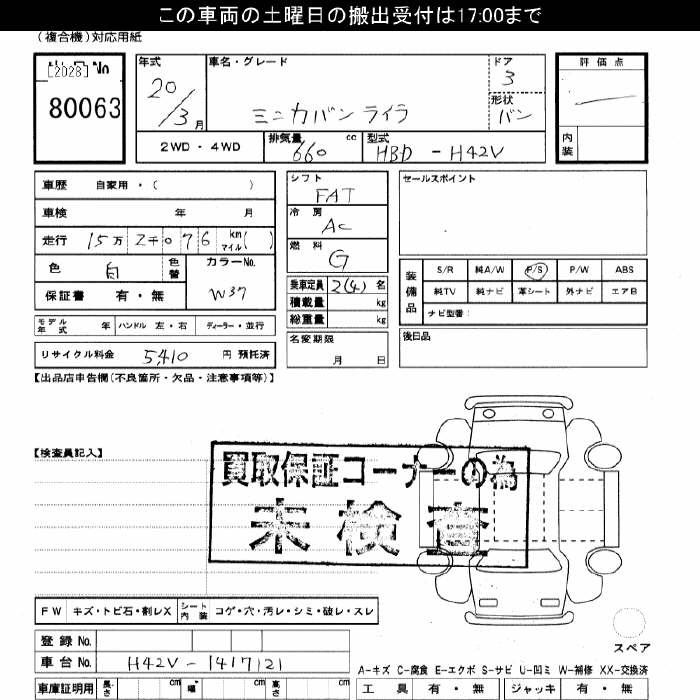 この車両の土曜日の搬出受付は17:00まで
(複合機)対応用紙
[2028] No
80063
年式
20/3月
車名・グレード
ミニカバン ライラ
ドア
3
形状
バン
評価点
内装
2WD・4WD
排気量 660 cc
型式 HBD - H42V
車歴 自家用・( )
車検 年 月
走行 15万2千076 km マイル( )
色 白 色替
カラーNo. W37
保証書 有・無
モデル年式 年 ハンドル 左・右 ディーラー・並行
リサイクル料金 5,410 円 預託済
シフト
FAT
冷房
AC
燃料
G
乗車定員 2(4) 名
積載量 kg
総重量 kg
名変期限
月 日
セールスポイント
装備品
S/R 純A/W P/S P/W ABS
純TV 純ナビ 革シート 外ナビ エアB
ナビ型番:
後日品
【出品店申告欄(不良箇所・欠品・注意事項等)】
【検査員記入】
買取保証コーナーの為
未検査
FW キズ・トビ石・割レX シート内装 コゲ・穴・汚レ・シミ・破レ・スレ
登録No.
車台No. H42V-1417121
スペア
A-キズ C-腐食 E-エクボ S-サビ U-凹ミ W-補修 XX-交換済
車庫証明用 長さ cm 幅 cm 高さ cm
工具 有・無 ジャッキ 有・無